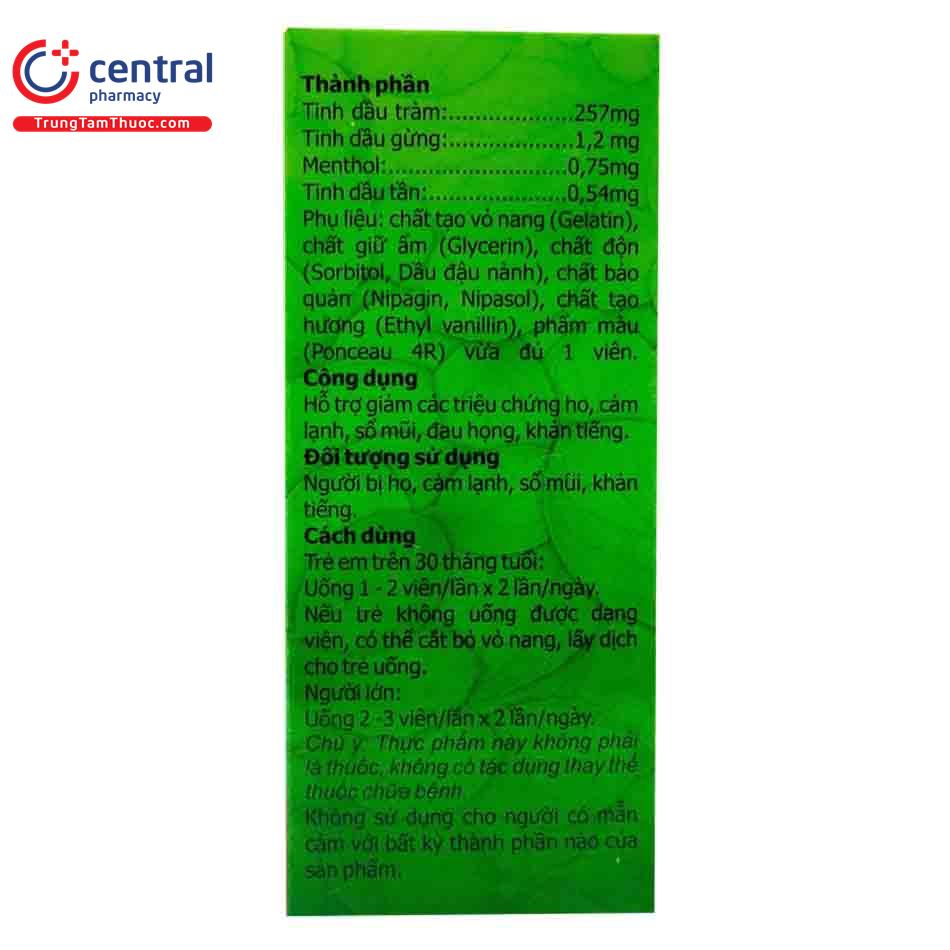 central
pharmacy
TrungTamThuoc.com
Thành phần
Tinh dầu tràm:....................257mg
Tinh dầu gừng:....................1,2 mg
Menthol:.............................0,75mg
Tinh dầu tần:......................0,54mg
Phụ liệu: chất tạo vỏ nang (Gelatin),
chất giữ ẩm (Glycerin), chất độn
(Sorbitol, Dầu đậu nành), chất bảo
quản (Nipagin, Nipasol), chất tạo
hương (Ethyl vanillin), phẩm màu
(Ponceau 4R) vừa đủ 1 viên.
Công dụng
Hỗ trợ giảm các triệu chứng ho, cảm
lạnh, sổ mũi, đau họng, khản tiếng.
Đối tượng sử dụng
Người bị ho, cảm lạnh, sổ mũi, khản
tiếng.
Cách dùng
Trẻ em trên 30 tháng tuổi:
Uống 1 - 2 viên/lần x 2 lần/ngày.
Nếu trẻ không uống được dạng
viên, có thể cắt bỏ vỏ nang, lấy dịch
cho trẻ uống.
Người lớn:
Uống 2 -3 viên/lần x 2 lần/ngày.
Chú ý: Thực phẩm này không phải
là thuốc, không có tác dụng thay thế
thuốc chữa bệnh.
Không sử dụng cho người có mẫn
cảm với bất kỳ thành phần nào của
sản phẩm.